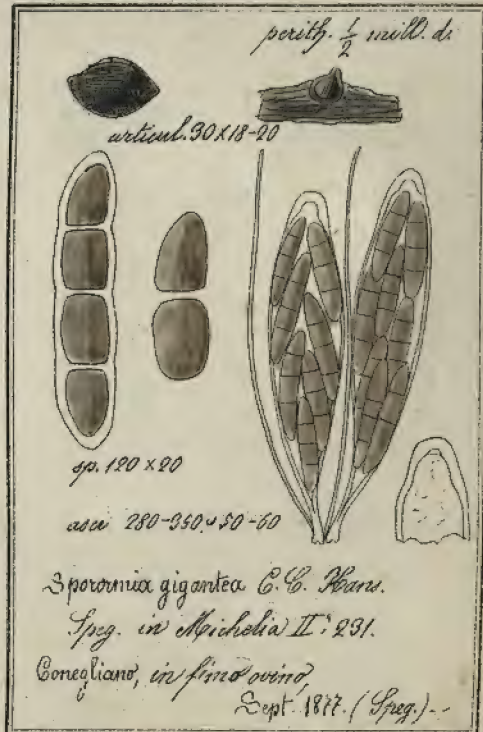 perith. 1/2 mill. d.
articul. 30 x 18-20
sp. 120 x 20
asci 280-350 x 50-60
Sporormia gigantea E. C. Hans.
Speg. in Michelia II: 231.
Conegliano, in fimo ovino,
Sept. 1877. (Speg.) -